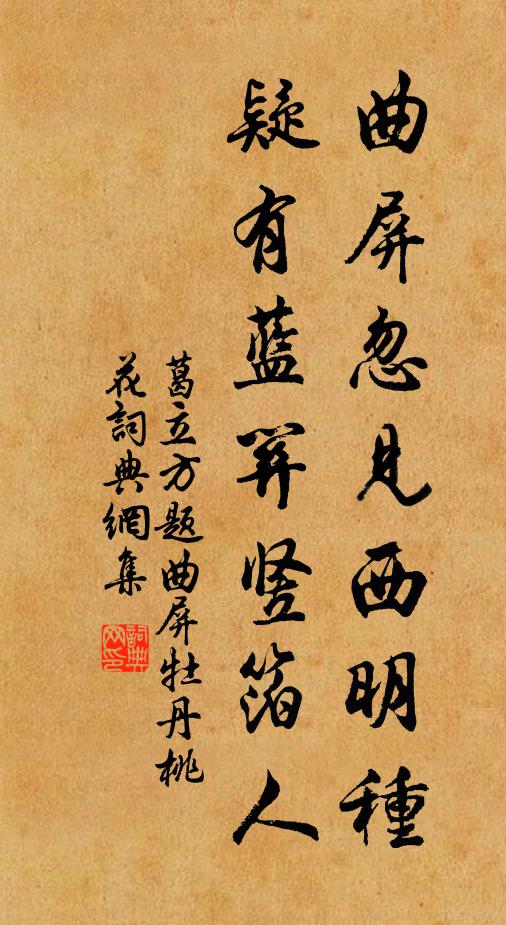 曲屏忽見西明種
疑有藍笄竖箔人
葛立方題曲屏牡丹桃
花詞典網集
詞典
网印